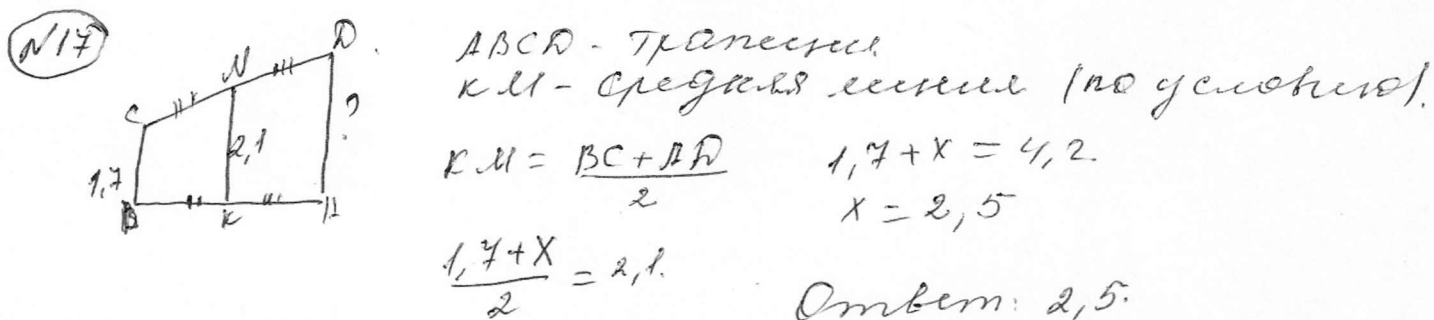 N17
D.
N
C
2,1
?
1,7
B
K
ABCD - трапеция
KM - средняя линия (по условию).
KM = BC + AD / 2
1,7 + x = 4,2.
x = 2,5
1,7 + X / 2 = 2,1.
Ответ: 2,5.